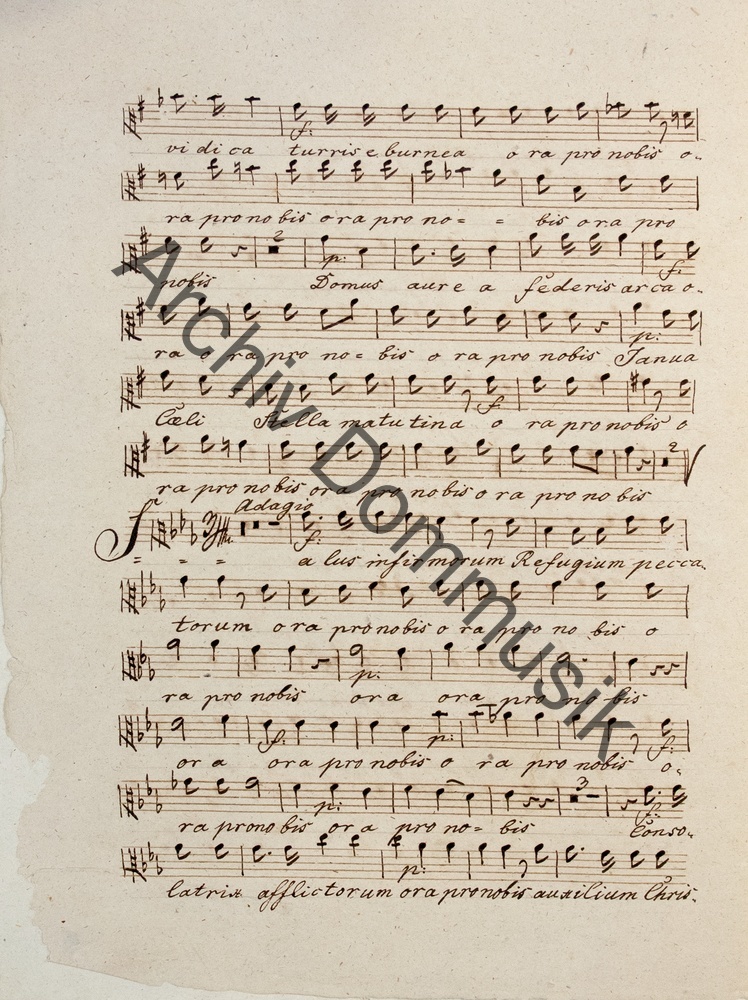 vi di ca turris e burnea o ra pro nobis o-
f:
ra pro no bis o ra pro no= = bis o ra pro
2
p:
f:
nobis Domus aure a fœderis ar ca o-
p:
ra o ra pro no= bis o ra pro nobis Janua
f
Cœli Stella matu tina o ra pro nobis o
2
ra pro no bis ora pro nobis o ra pro no bis
Adagio
3/4
f:
S = = = a lus infirmorum Refugium pecca-
torum o ra pro nobis o ra pro no bis o
p:
ra pro nobis ora ora pro no-bis
f: p: f:
or a ora pro nobis o ra pro nobis o-
p: 3 f:
ra prono bis or a pro no= bis Conso-
p:
latrix afflictorum ora pro nobis auxilium Chris-
Archiv Dommusik